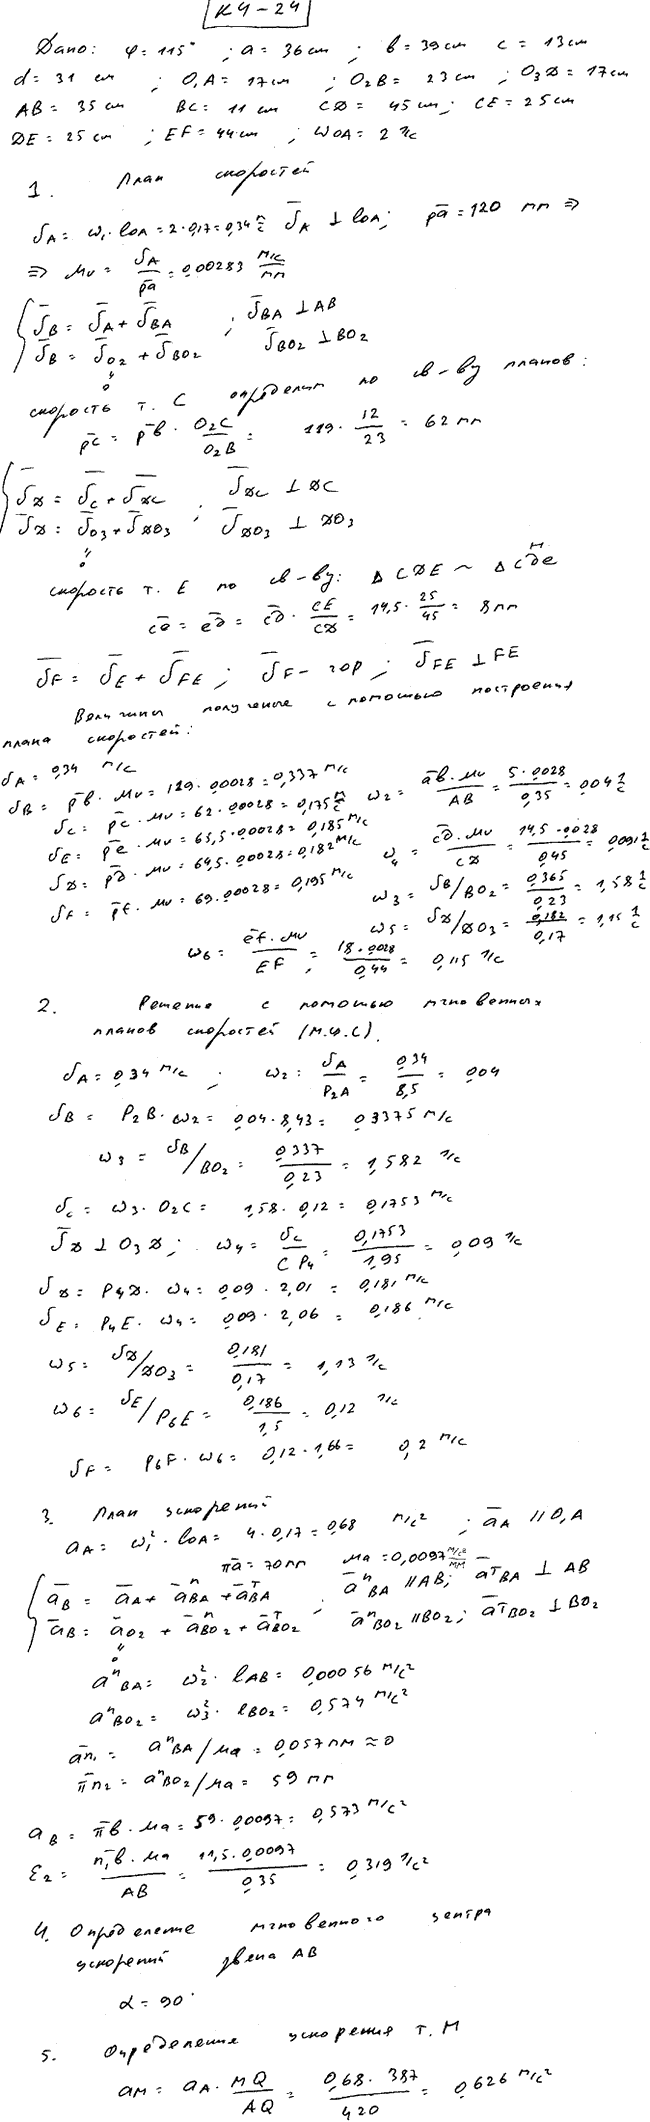 К4-24
Дано: φ = 115° ; a = 36 cm ; b = 39 cm c = 13 cm
d = 31 cm ; O₁A = 17 cm ; O₂B = 23 cm ; O₃D = 17 cm
AB = 35 cm BC = 11 cm CD = 45 cm ; CE = 25 cm
DE = 25 cm ; EF = 44 cm ; ωOA = 2 1/c
1. План скоростей
υA = ω₁·lOA = 2·0,17 = 0,34 м/c ῡA ⊥ lOA ; p̄a = 120 mm ⇒
⇒ μv = υA/p̄a = 0,00283 м/c/mm
{ ῡB = ῡA + ῡBA ; ῡBA ⊥ AB
ῡB = ῡO₂ + ῡBO₂ ῡBO₂ ⊥ BO₂
" 0
скорость т. C определим по св-ву планов:
p̄c = p̄b · O₂C/O₂B = 119 · 12/23 = 62 mm
{ ῡD = ῡC + ῡDC ; ῡDC ⊥ DC
ῡD = ῡO₃ + ῡDO₃ ῡDO₃ ⊥ DO₃
" 0
скорость т. E по св-ву: Δ CDE ~ Δ cde
c̄e = ēd = c̄d · CE/CD = 14,5 · 25/45 = 8 mm
ῡF = ῡE + ῡFE ; ῡF – гор ; ῡFE ⊥ FE
Величины полученые с помощью построения
плана скоростей:
υA = 0,34 м/c
υB = p̄b · μv = 119 · 0,0028 = 0,337 м/c ω₂ = āb·μv/AB = 5·0,0028/0,35 = 0,04 1/c
υC = p̄c · μv = 62 · 0,0028 = 0,175 м/c
υE = p̄e · μv = 65,5 · 0,0028 = 0,185 м/c ω₄ = c̄d·μv/CD = 14,5·0,0028/0,45 = 0,091 1/c
υD = p̄d · μv = 64,5 · 0,0028 = 0,182 м/c
υF = p̄f · μv = 69 · 0,0028 = 0,195 м/c ω₃ = υB/BO₂ = 0,365/0,23 = 1,58 1/c
ω₅ = υD/DO₃ = 0,182/0,17 = 1,15 1/c
ω₆ = ēf·μv/EF = 18·0,0028/0,44 = 0,115 1/c
2. Решение с помощью мгновенных
планов скоростей (М.Ц.С).
υA = 0,34 м/c ; ω₂ = υA/P₂A = 0,34/8,5 = 0,04
υB = P₂B · ω₂ = 0,04 · 8,43 = 0,3375 м/c
ω₃ = υB/BO₂ = 0,337/0,23 = 1,582 1/c
υc = ω₃ · O₂C = 1,58 · 0,12 = 0,1753 м/c
ῡD ⊥ O₃D ; ω₄ = υc/CP₄ = 0,1753/1,95 = 0,09 1/c
υD = P₄D · ω₄ = 0,09 · 2,01 = 0,181 м/c
υE = P₄E · ω₄ = 0,09 · 2,06 = 0,186 м/c
ω₅ = υD/DO₃ = 0,181/0,17 = 1,13 1/c
ω₆ = υE/P₆E = 0,186/1,5 = 0,12 1/c
υF = P₆F · ω₆ = 0,12 · 1,66 = 0,2 м/c
3. План ускорений
aA = ω₁² · lOA = 4 · 0,17 = 0,68 м/c² ; āA // O₁A
π̄a = 70 mm μa = 0,0097 м/c²/мм
{ āB = āA + āⁿBA + āᵀBA ; āⁿBA // AB ; āᵀBA ⊥ AB
āB = āO₂ + āⁿBO₂ + āᵀBO₂ āⁿBO₂ // BO₂ ; āᵀBO₂ ⊥ BO₂
" 0
aⁿBA = ω₂² · lAB = 0,00056 м/c²
aⁿBO₂ = ω₃² · lBO₂ = 0,574 м/c²
ān₁ = aⁿBA/μa = 0,057 mm ≈ 0
π̄n₂ = aⁿBO₂/μa = 59 mm
aB = π̄b · μa = 59 · 0,0097 = 0,573 м/c²
ε₂ = n̄₁b·μa/AB = 11,5·0,0097/0,35 = 0,319 1/c²
4. Определение мгновенного центра
ускорений звена AB
α = 90°
5. Определение ускорения т. М
aM = aA · MQ/AQ = 0,68 · 387/420 = 0,626 м/c²